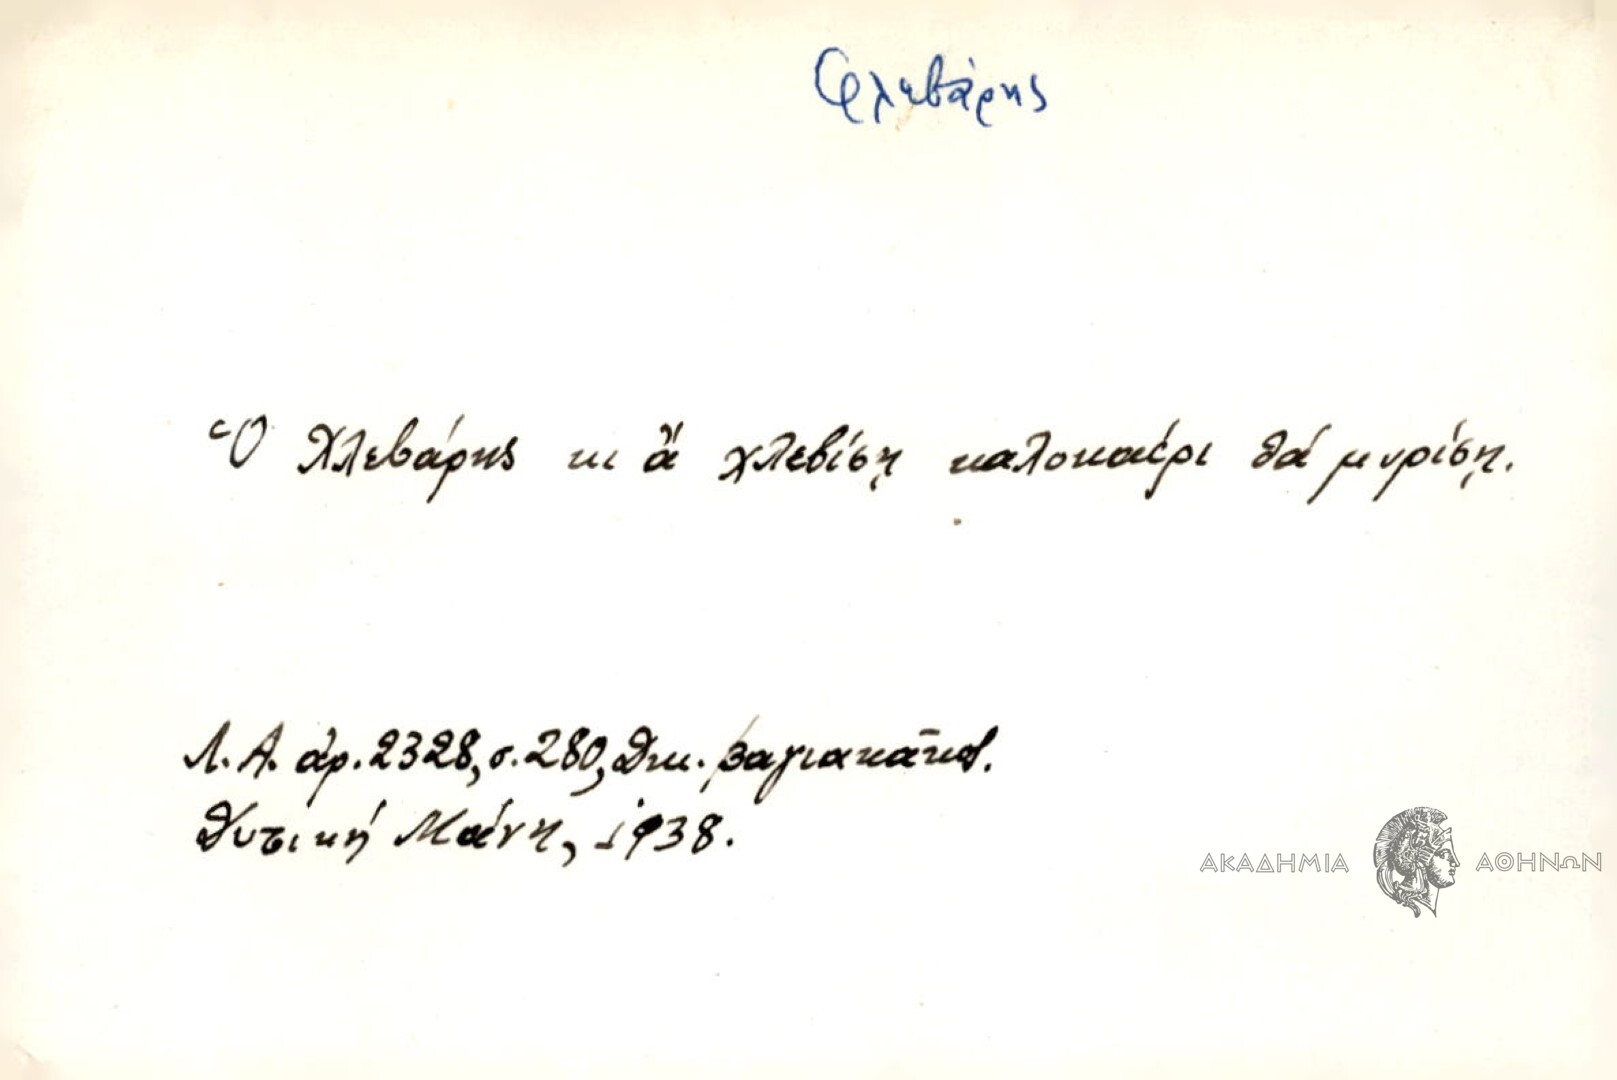 Φλεβάρης
Ὁ Χλεβάρης κι ἂ χλεβίσῃ καλοκαίρι θά μυρίσῃ.
Λ.Α. ἀρ. 2328, σ. 280, Δικ. Βαγιακᾶκος.
Δυτική Μάνη, 1938.
ΑΚΑΔΗΜΙΑ ΑΘΗΝΩΝ